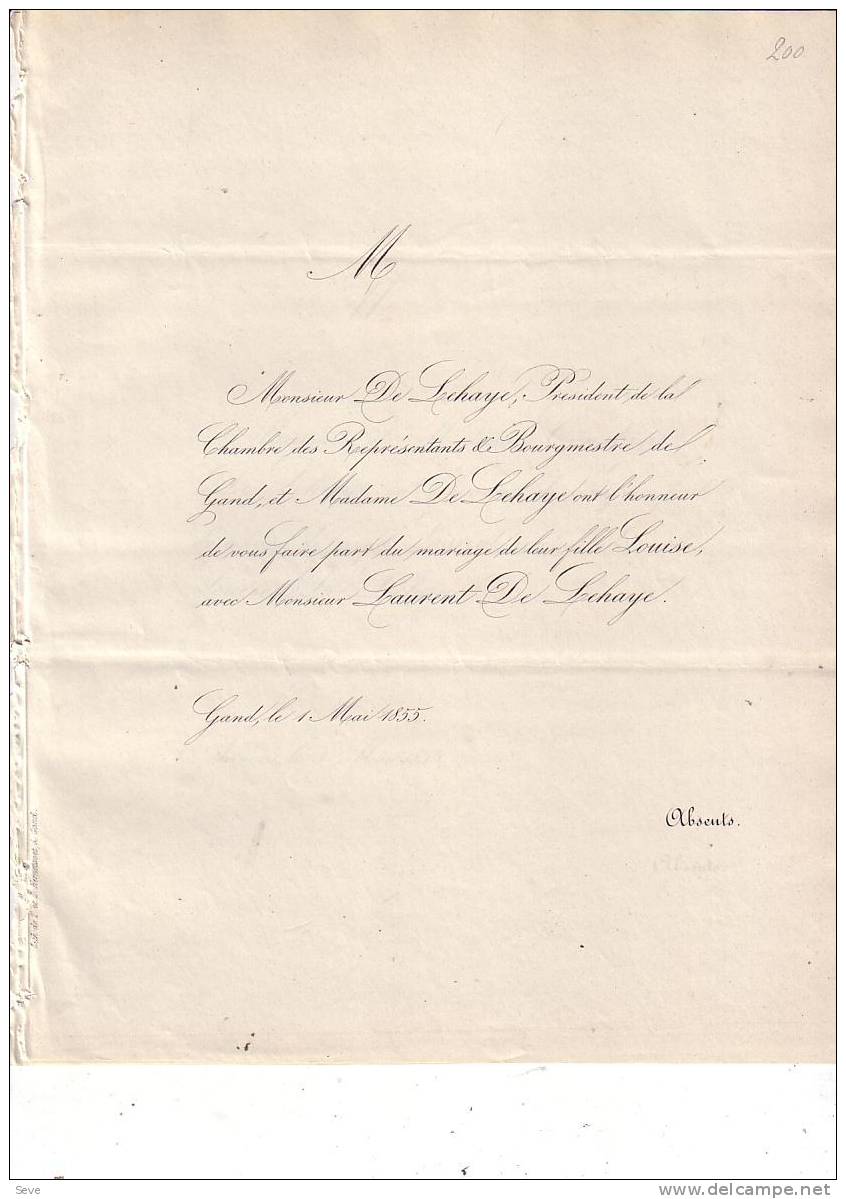 200
M
Monsieur De Lehaye, Président de la
Chambre des Représentants & Bourgmestre de
Gand, et Madame De Lehaye ont l'honneur
de vous faire part du mariage de leur fille Louise,
avec Monsieur Laurent De Lehaye.
Gand, le 1 Mai 1855.
Absents.
à Gand.
Seve
delcampe.net